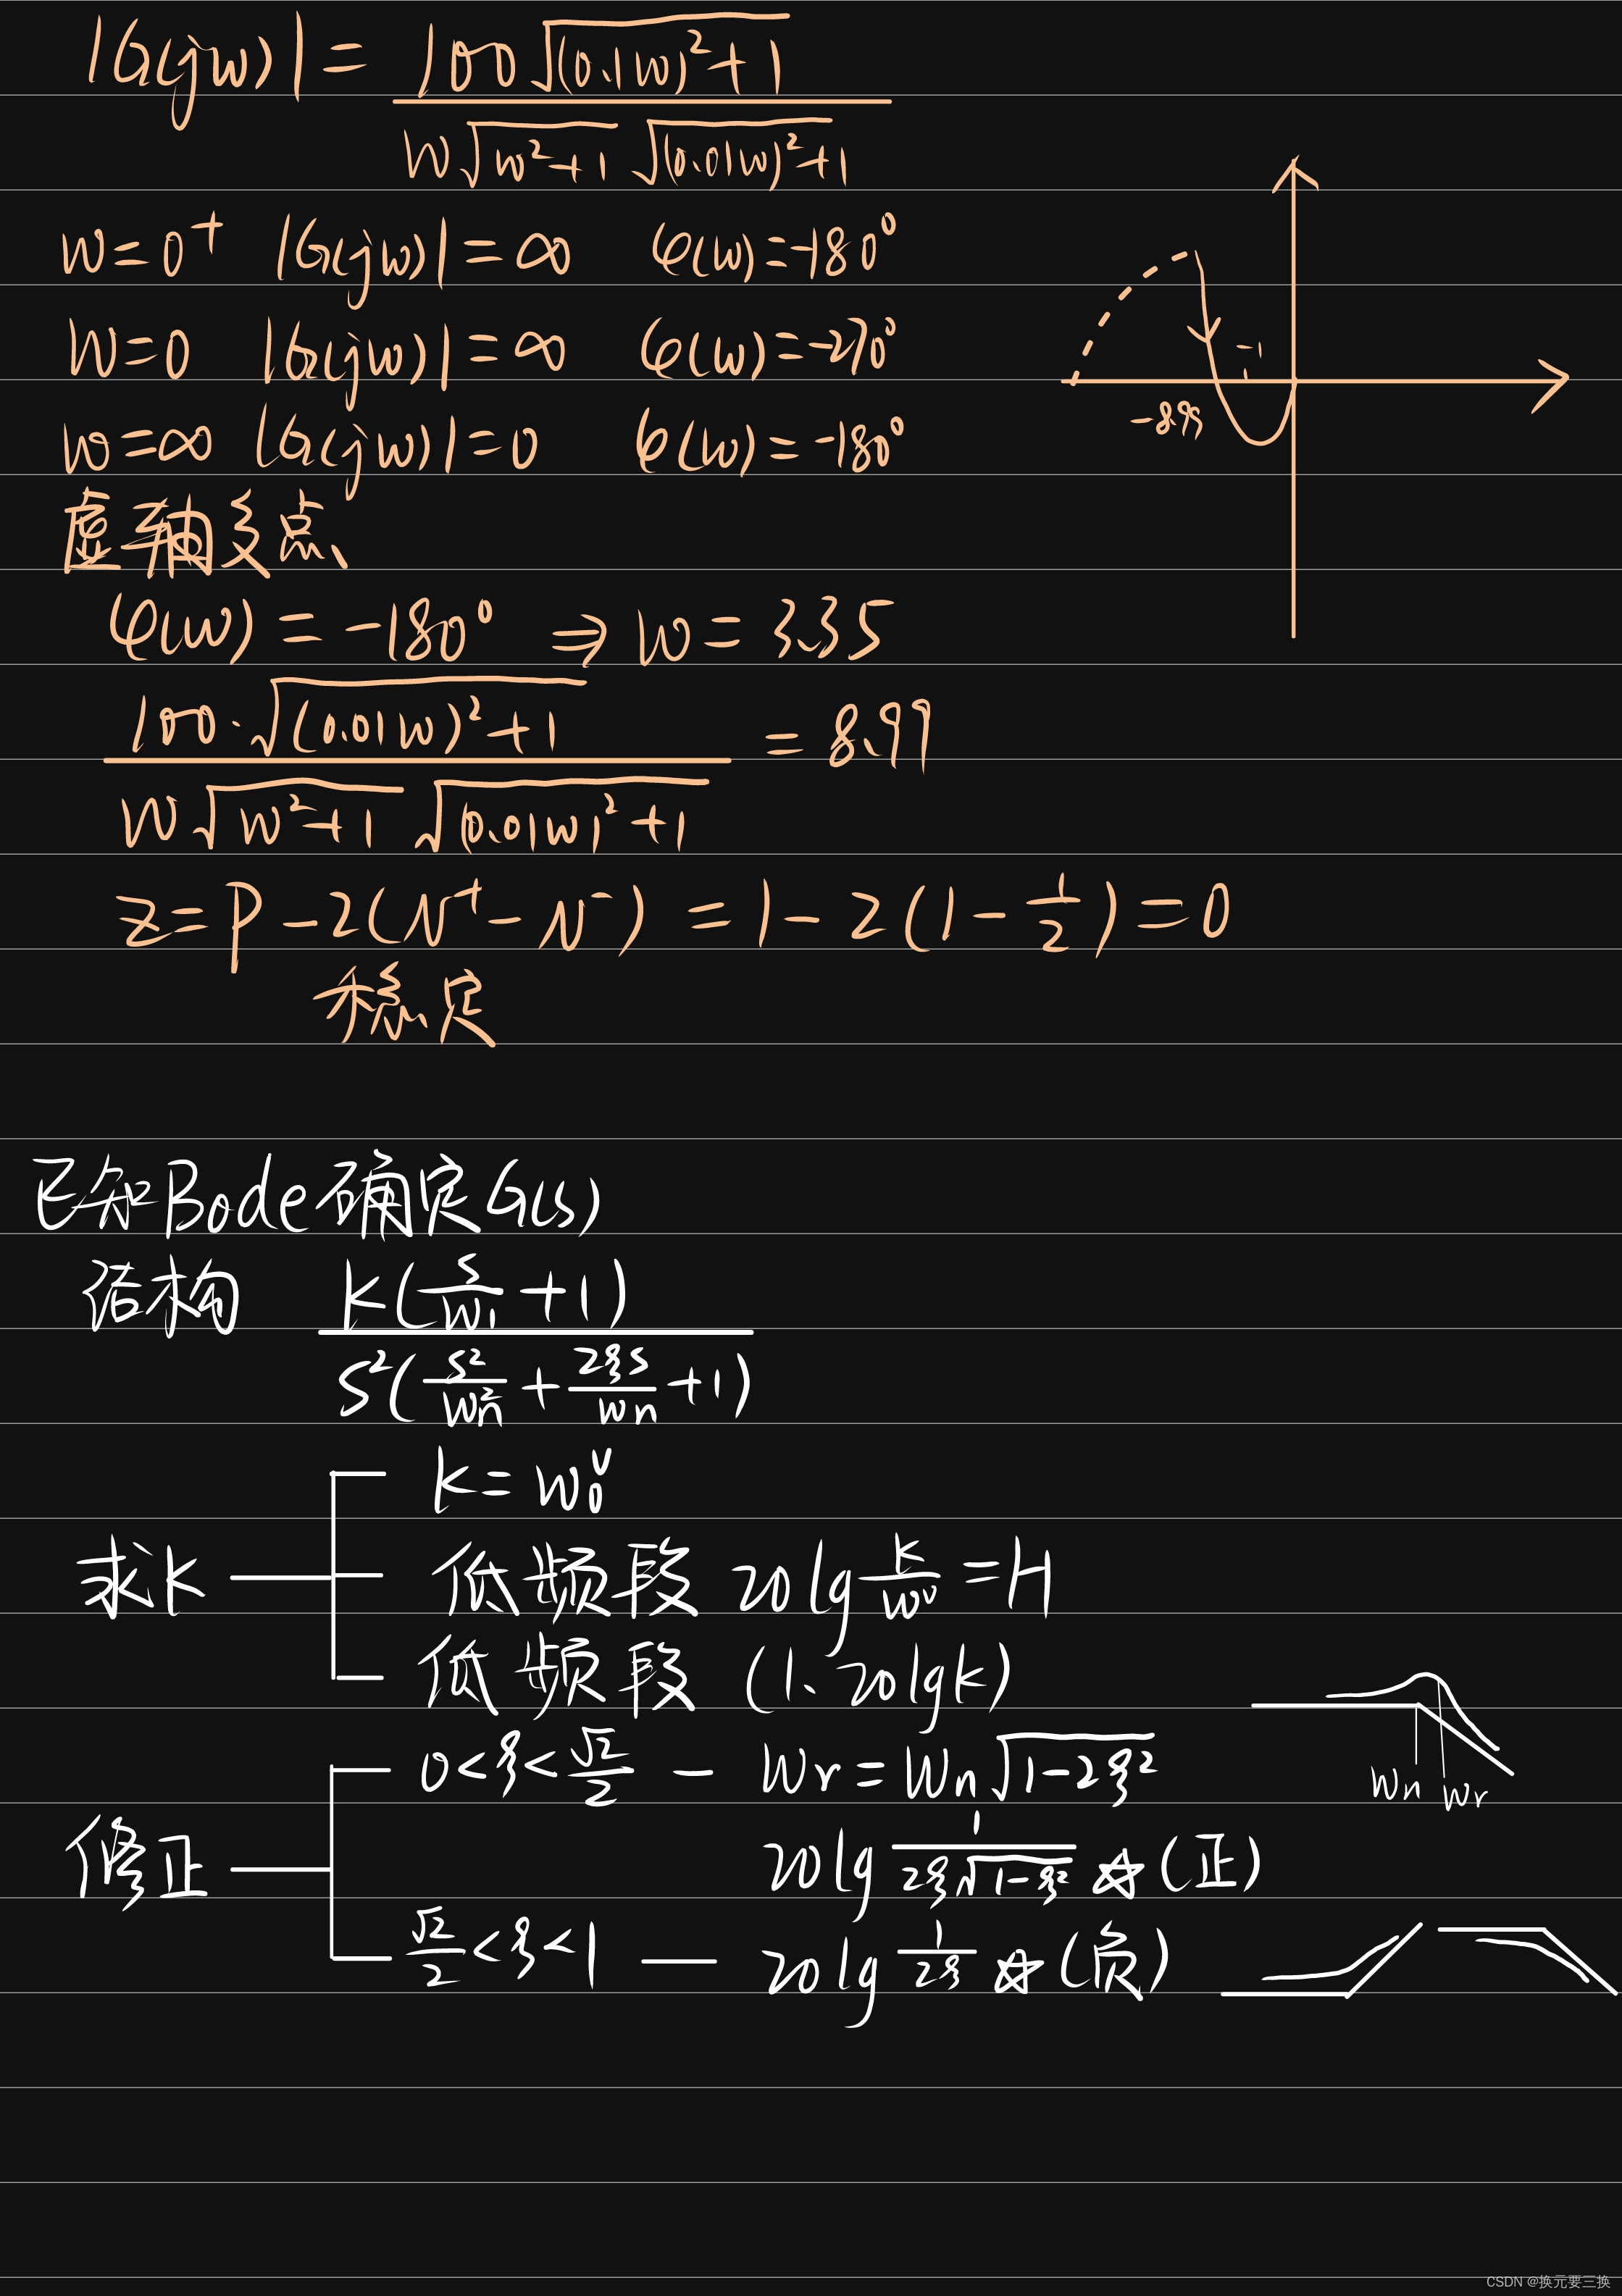 |G(jw)| = 100√((0.1w)²+1) / (w√(w²+1) √((0.01w)²+1))
w=0⁺ |G(jw)|=∞ φ(w)=-180°
w=0 |G(jw)|=∞ φ(w)=-270°
w=∞ |G(jw)|=0 φ(w)=-180°
-1
-8.99
虚轴交点
φ(w) = -180° ⇒ w = 3.35
100·√((0.01w)²+1) / (w√(w²+1) √((0.01w)²+1)) = 8.99
z=P-2(N⁺-N⁻) = 1-2(1-1/2)=0
稳定
已知Bode确定G(s)
结构 k(s/w₁+1) / (s²(s²/wn²+2ξs/wn+1))
求k
k=w₀ᵛ
低频段 20lg k/wᵛ =H
低频段 (1、20lgk)
修正
0<ξ<√2/2 — wr=wn√(1-2ξ²)
wn wr
20lg 1/(2ξ√(1-ξ²)) ☆(正)
√2/2<ξ<1 — 20lg 1/(2ξ) ☆(负)
CSDN @换元要三换